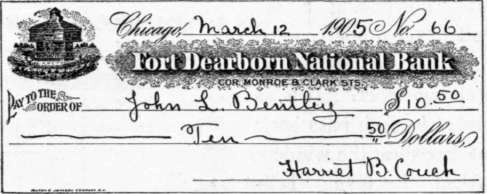 Chicago, March 12 1905 No. 66
Fort Dearborn National Bank
COR. MONROE & CLARK STS.
PAY TO THE ORDER OF John L. Bentley $10.50
Ten 50/ Dollars
Harriet B. Couch